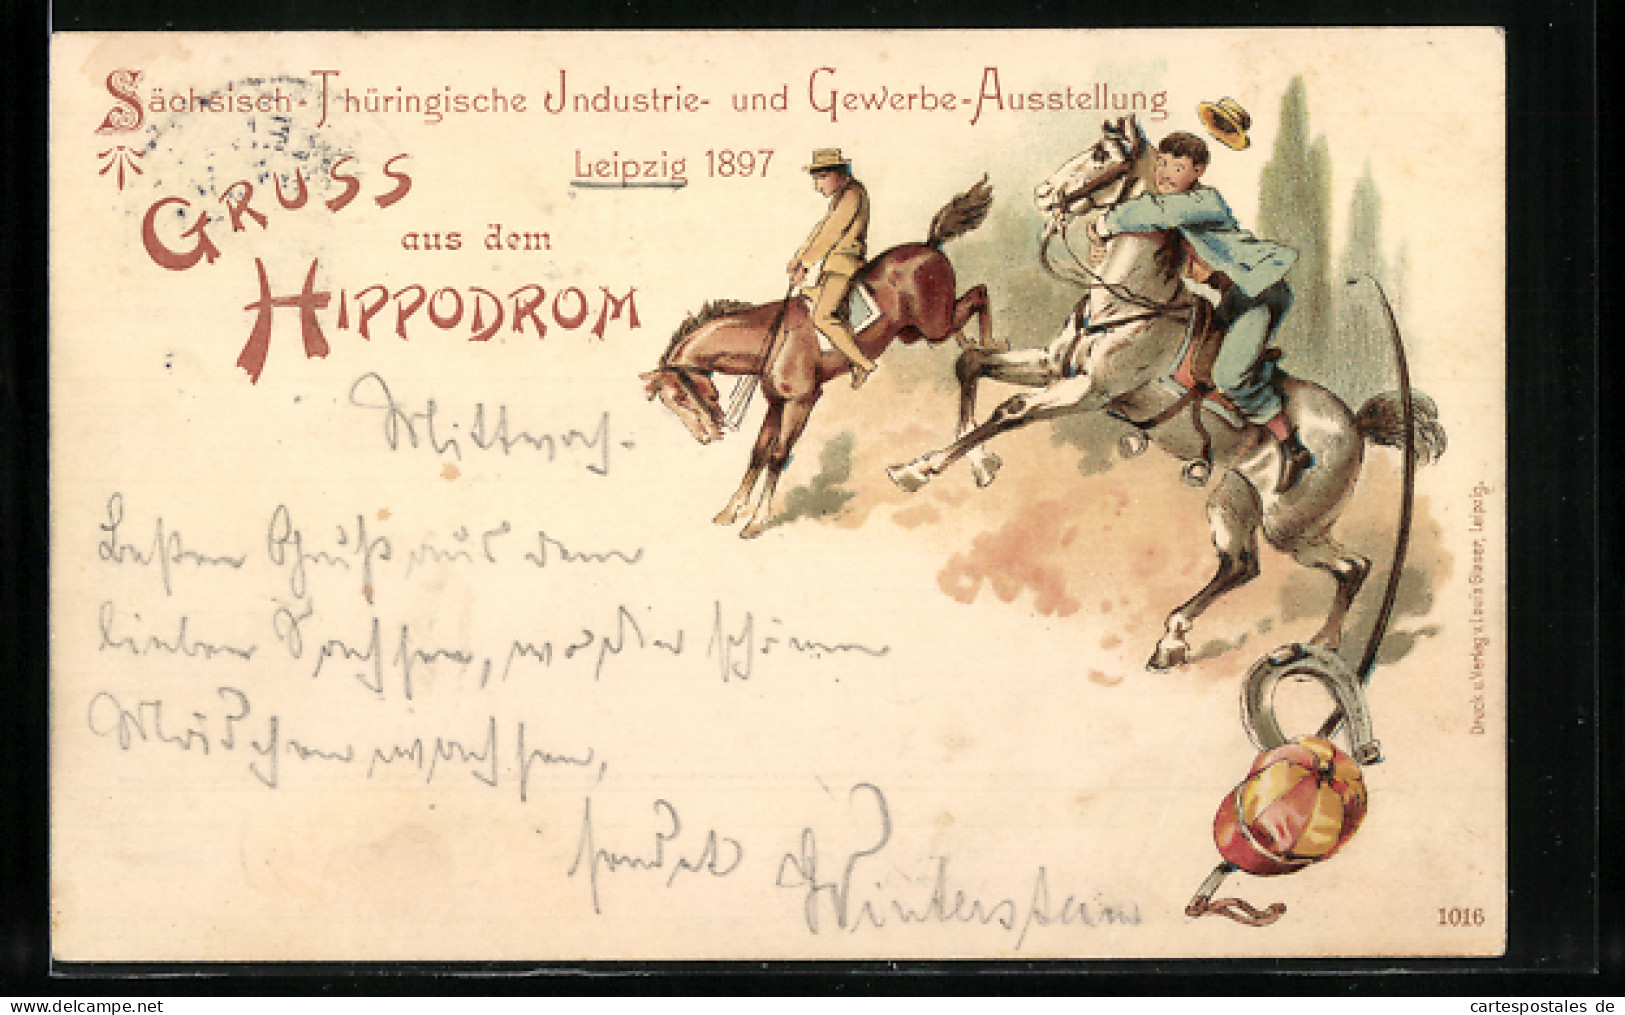 Sächsisch-Thüringische Industrie- und Gewerbe-Ausstellung
Leipzig 1897
GRUSS
aus dem
HIPPODROM
Mittwoch.
Besten Gruß aus dem
lieben Sachsen, wo die schönen
Mädchen wachsen,
sendet Winterstein
Druck u. Verlag v. Louis Glaser, Leipzig.
1016
oldthing.net
cartespostales de